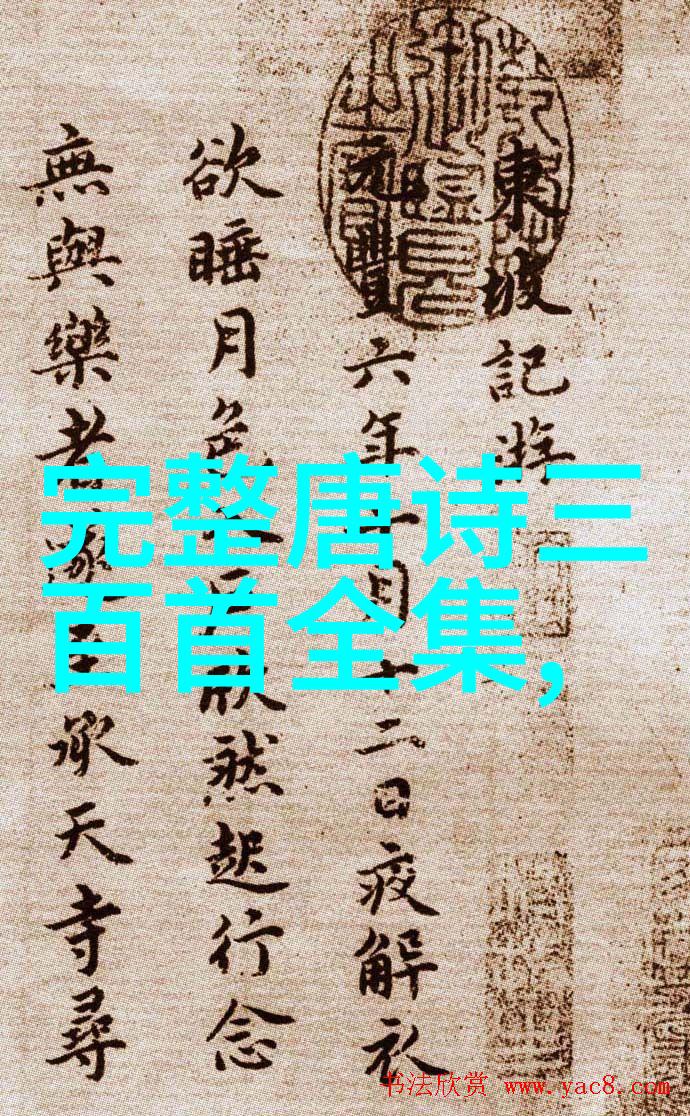 東坡記游
元豐六年十月十二日夜解衣
欲睡月色入戶欣然起行念
無與樂者遂至承天寺尋
完整唐诗三
百首全集,
书法欣赏 www.yac8.com